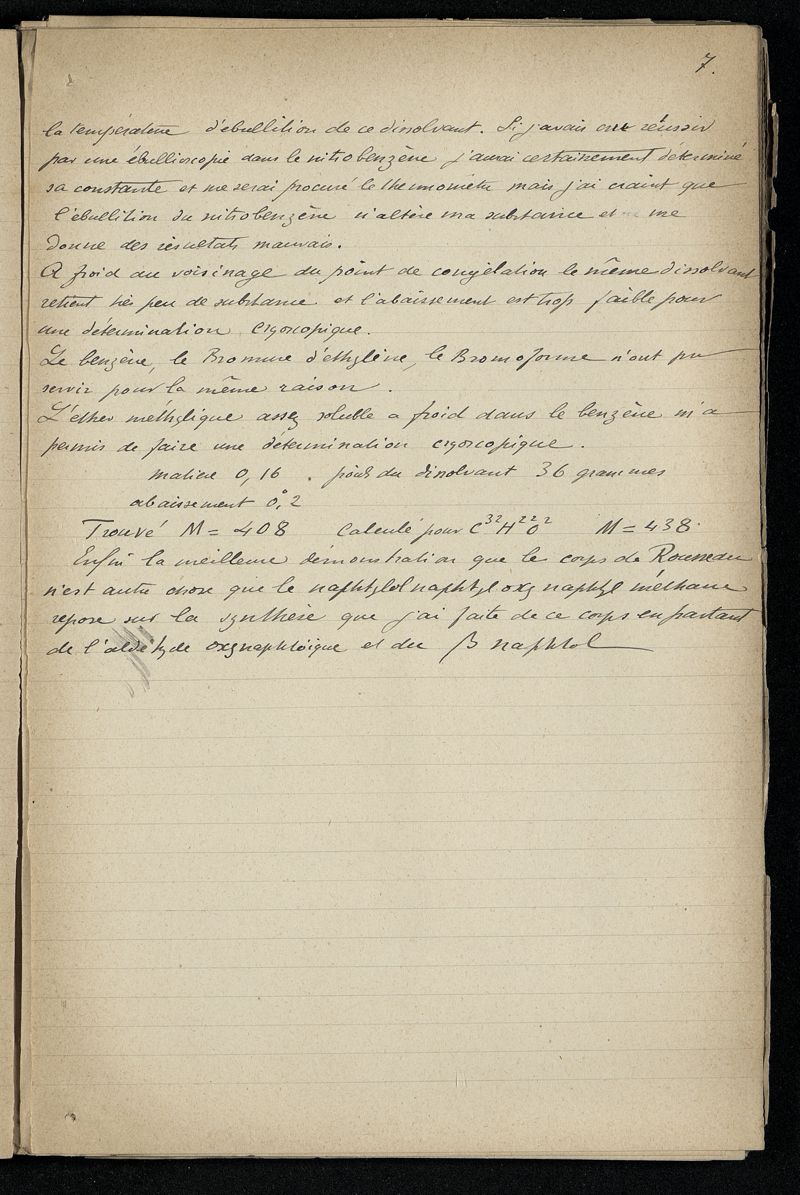 7.
la température d'ébullition de ce dissolvant. Si j'avais cru réussir
par une ébullioscopie dans le nitrobenzène j'aurai certainement déterminé
sa constante et me serai procuré le thermomètre mais j'ai craint que
l'ébullition du nitrobenzène n'altère ma substance et me
donne des résultats mauvais.
A froid au voisinage du point de congélation le même dissolvant
retient très peu de substance et l'abaissement est trop faible pour
une détermination cryoscopique.
Le benzène, le Bromure d'éthylène, le Bromoforme n'ont pu
servir pour la même raison.
L'ether méthylique assez soluble a froid dans le benzène m'a
permis de faire une détermination cryoscopique.
matière 0,16 . poids du dissolvant 36 grammes
abaissement 0°,2
Trouvé M = 408 Calculé pour C³²H²²O² M = 438.
Enfin la meilleure démonstration que le corps de Rousseau
n'est autre chose que le naphtylol naphtyl oxy naphtyl méthane
repose sur la synthèse que j'ai faite de ce corps en partant
de l'aldéhyde oxynaphtoïque et du β naphtol